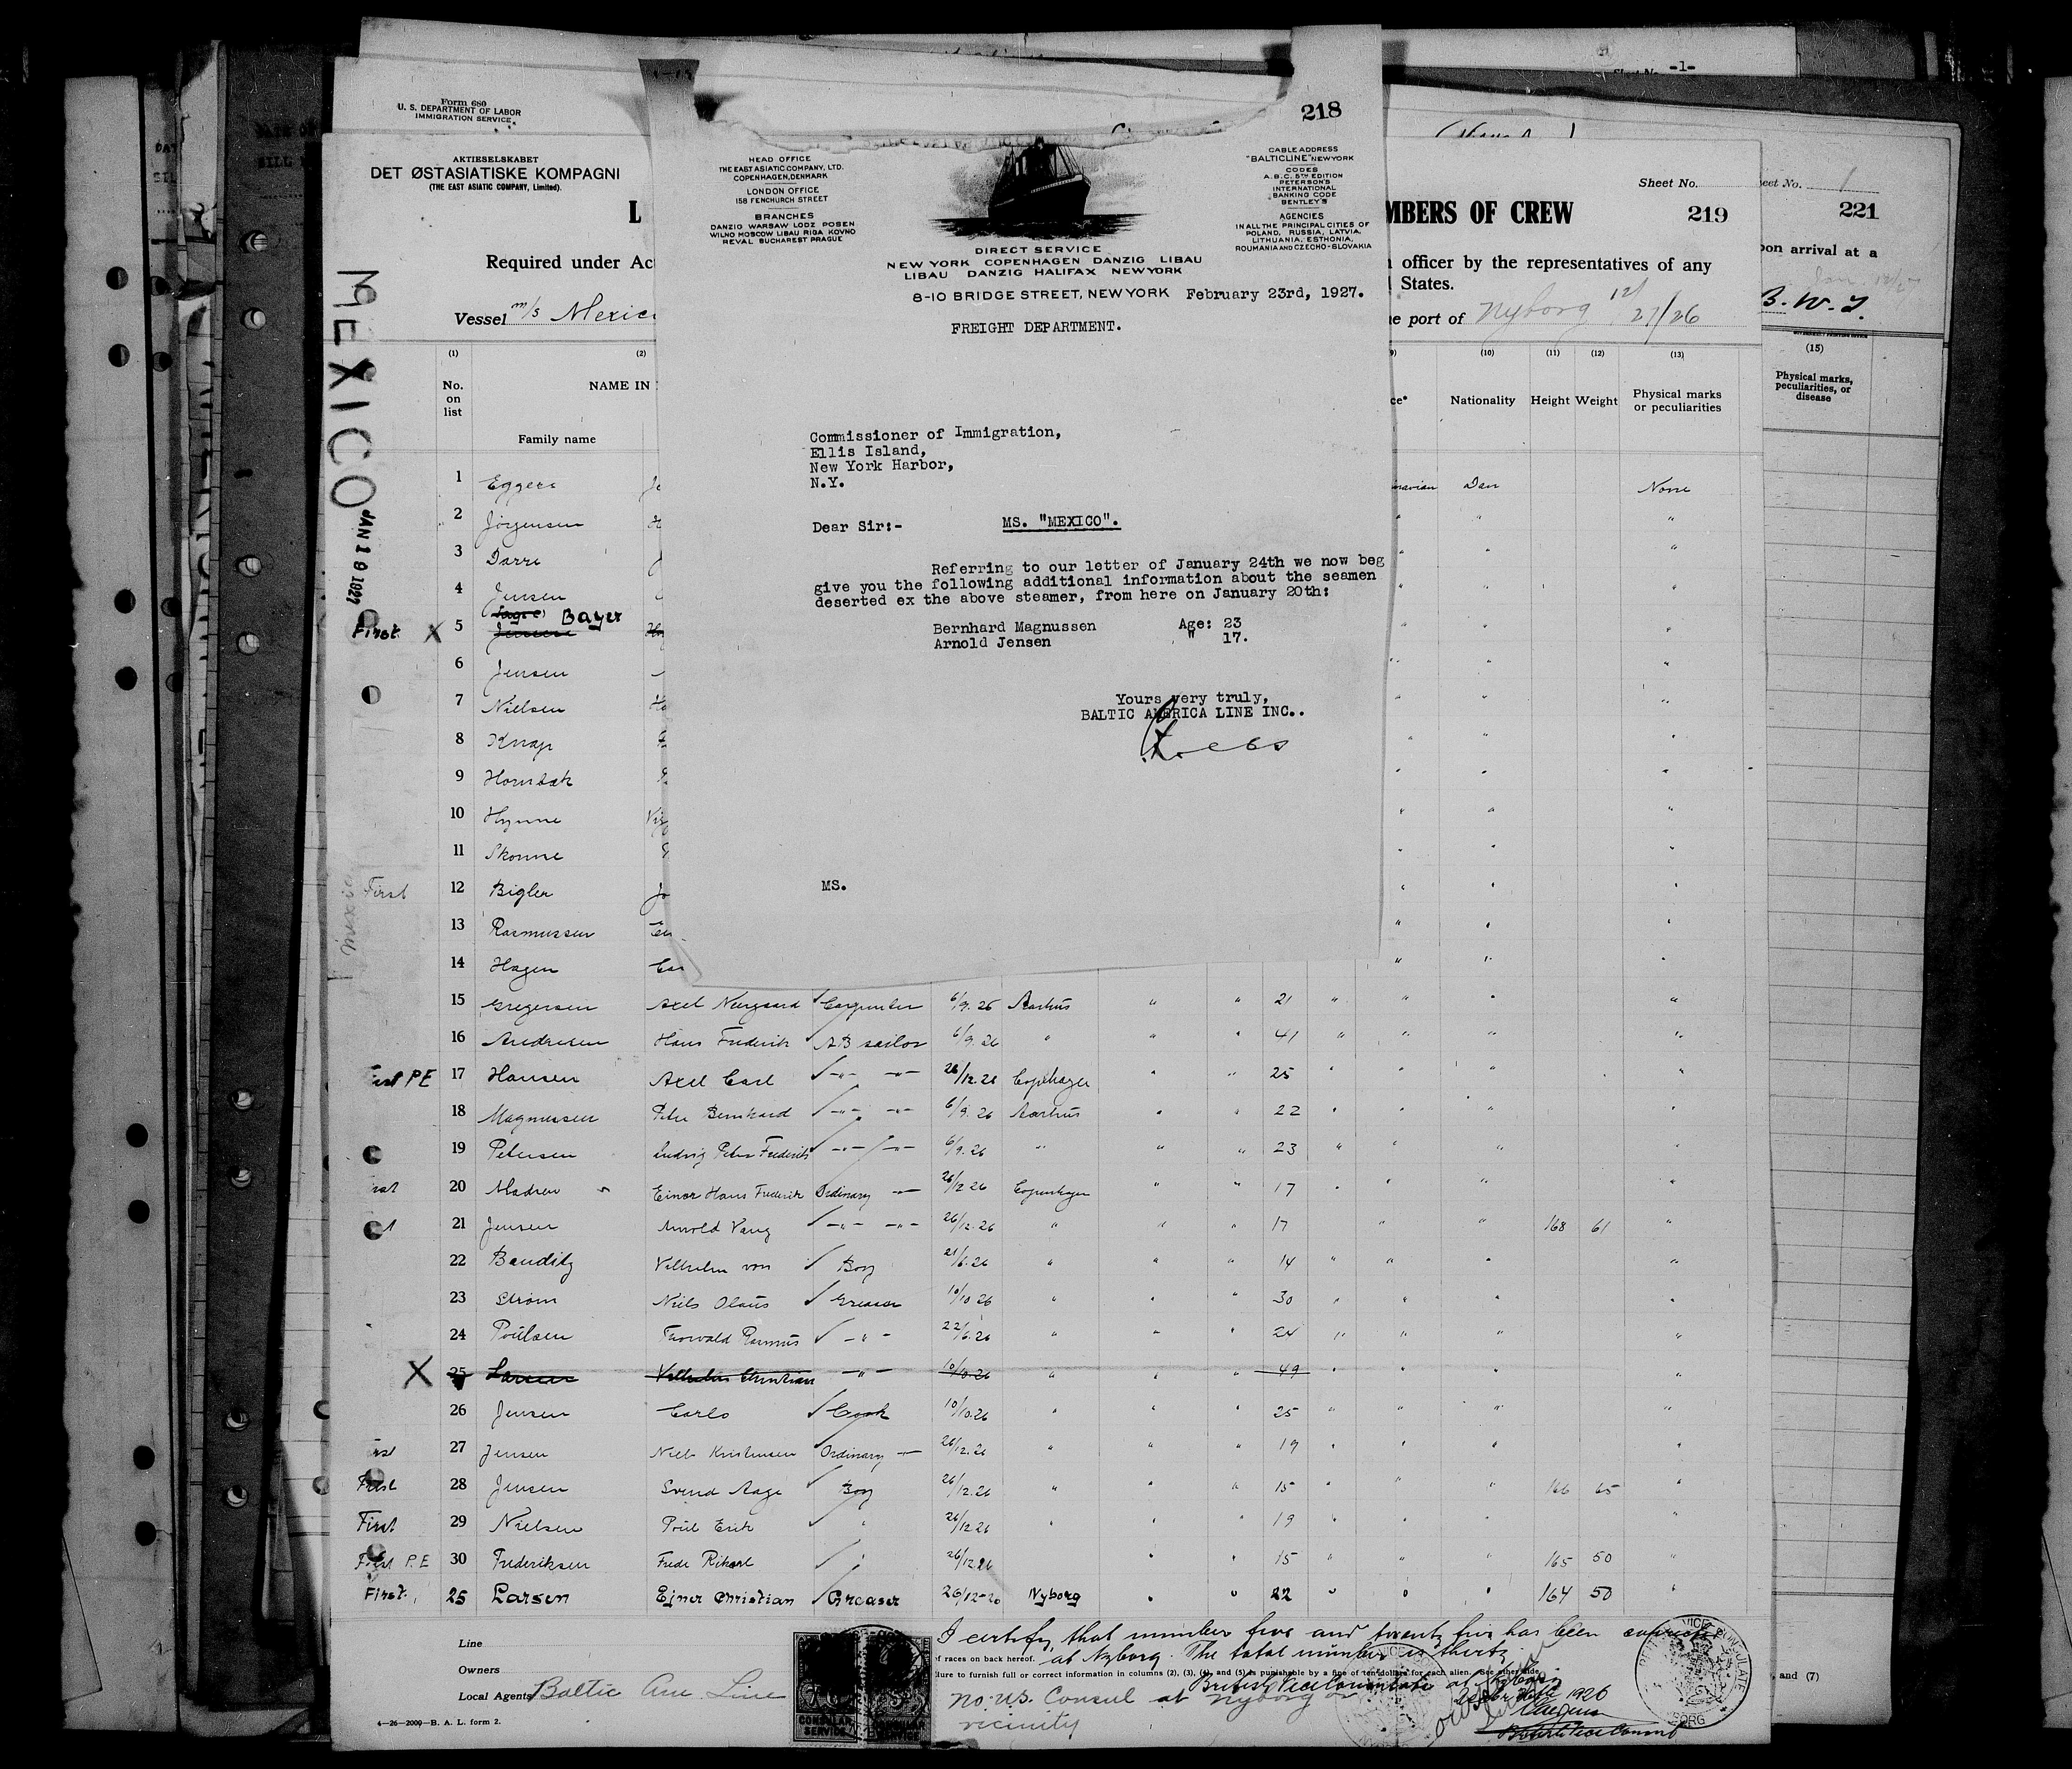 -1-
Form 680
U. S. DEPARTMENT OF LABOR
IMMIGRATION SERVICE
218
AKTIESELSKABET
DET ØSTASIATISKE KOMPAGNI
(THE EAST ASIATIC COMPANY, Limited).
HEAD OFFICE
THE EAST ASIATIC COMPANY, LTD.
COPENHAGEN, DENMARK
LONDON OFFICE
158 FENCHURCH STREET
BRANCHES
DANZIG WARSAW LODZ POSEN
WILNO MOSCOW LIBAU RIGA KOVNO
REVAL BUCHAREST PRAGUE
CABLE ADDRESS
"BALTICLINE" NEW YORK
CODES
A.B.C. 5TH EDITION
PETERSON'S
INTERNATIONAL
BANKING CODE
BENTLEY'S
AGENCIES
IN ALL THE PRINCIPAL CITIES OF
POLAND, RUSSIA, LATVIA,
LITHUANIA, ESTHONIA,
ROUMANIA AND CZECHO-SLOVAKIA
DIRECT SERVICE
NEW YORK COPENHAGEN DANZIG LIBAU
LIBAU DANZIG HALIFAX NEW YORK
8-10 BRIDGE STREET, NEW YORK February 23rd, 1927.
FREIGHT DEPARTMENT.
Commissioner of Immigration,
Ellis Island,
New York Harbor,
N.Y.
Dear Sir:- MS. "MEXICO".
Referring to our letter of January 24th we now beg
give you the following additional information about the seamen
deserted ex the above steamer, from here on January 20th:
Bernhard Magnussen Age: 23
Arnold Jensen " 17.
Yours very truly,
BALTIC AMERICA LINE INC..
MS.
Sheet No.
219
eet No. 1
221
L
MBERS OF CREW
Required under Ac
officer by the representatives of any
States.
pon arrival at a
B. W. I.
Vessel m/s Mexic
e port of Nyborg 12/ 27/26
MEXICO
JAN 19 1927
(1) (2) (10) (11) (12) (13) (15)
No. on list NAME IN Nationality Height Weight Physical marks or peculiarities
Physical marks, peculiarities, or disease
Family name
1 Eggers Dan None
2 Jørgensen
3 Darre
4 Jensen
First X 5 Jensen Bayer
6 Jensen
7 Nielsen
8 Knap
9 Hornbæk
10 Hynne
11 Skonne
First 12 Bigler
13 Rasmussen
14 Hagen
15 Gregersen Axel Neergaard Carpenter 6/9.26 Aarhus " " 21 " "
16 Andresen Hans Frederik AB sailor 6/9.26 " " " 41 " "
PE 17 Hansen Axel Carl 26/12.26 Cophagen " " 25 " "
18 Magnussen Peter Bernhard 6/9.26 Aarhus " " 22 " "
19 Petersen Ludvig Peter Frederik 6/9.26 " " " 23 " "
20 Madsen Einar Hans Frederik Ordinary 26/12 26 Copenhagen " " 17 " "
21 Jensen Arnold Vang 26/12.26 " " " 17 " " 168 61 "
22 Bauditz Vilhelm von Boy 21/6.26 " " " 14 " "
23 Strøm Niels Olaus Greaser 10/10 26 " " " 30 " "
24 Poulsen Thorvald Rasmus 22/6.26 " " " 24 " "
X 25 Larsen Vilhelm Christian 10/10.26 " " " 49 " "
26 Jensen Carlo Cook 10/10.26 " " " 25 " "
27 Jensen Niels Kristensen Ordinary 26/12.26 " " " 19 " "
First 28 Jensen Svend Aage Boy 26/12.26 " " " 15 " " 166 65 "
First 29 Nielsen Poul Erik " 26/12 26 " " " 19 " "
First P.E 30 Frederiksen Frede Rikard " 26/12.26 " " 15 " " 165 50 "
First 25 Larsen Ejner Christian Greaser 26/12-26 Nyborg " " 22 " " 164 50 "
I certify, that number five and twenty five has been
at Nyborg. The total number is thirty
f races on back hereof.
lure to furnish full or correct information in columns (2), (3), (4), and (5) is punishable by a fine of ten dollars for each alien. See other side.
, and (7)
British Vice Consulate at Nyborg
1926
British Vice Consul
Line
Owners
Local Agents Baltic Am Line
No U.S. Consul at Nyborg or
vicinity
CONSULAR
SERVICE
4—26—2000—B. A. L. form 2.